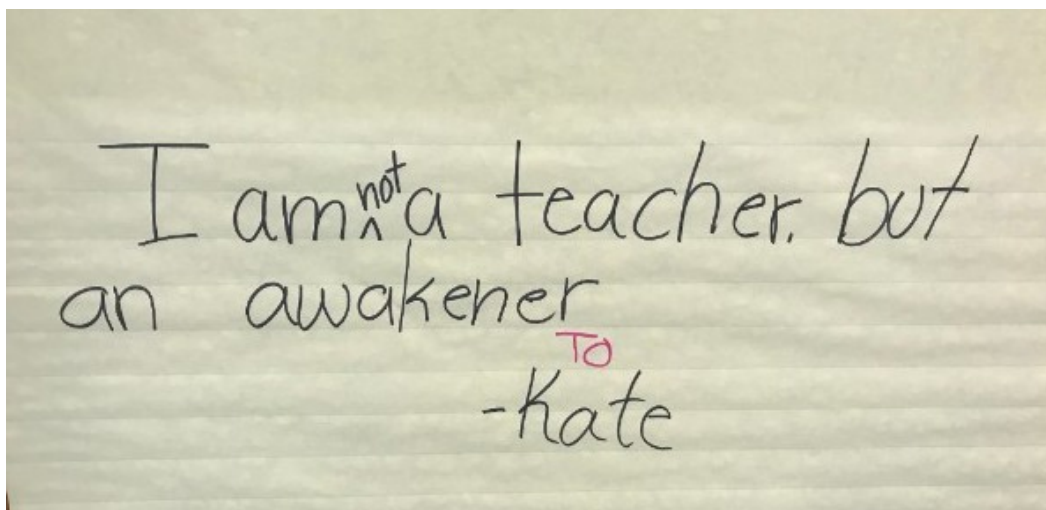 I am not a teacher. but
an awakener
TO
-Kate